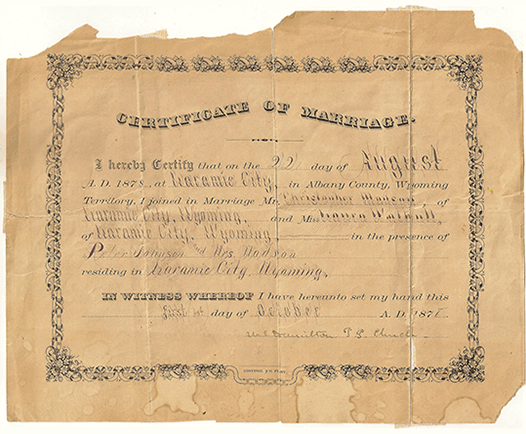 CERTIFICATE OF MARRIAGE.
I hereby Certify that on the 22 day of August
A. D. 1878, at Laramie City, in Albany County, Wyoming
Territory, I joined in Marriage Mr. Christopher of
Laramie City, Wyoming, and M
of Laramie City, Wyoming in the presence of
Peter Johnson and Mrs. Hodson
residing in Laramie City, Wyoming,
IN WITNESS WHEREOF I have hereunto set my hand this
first 1st day of October A. D. 1878
Hamilton